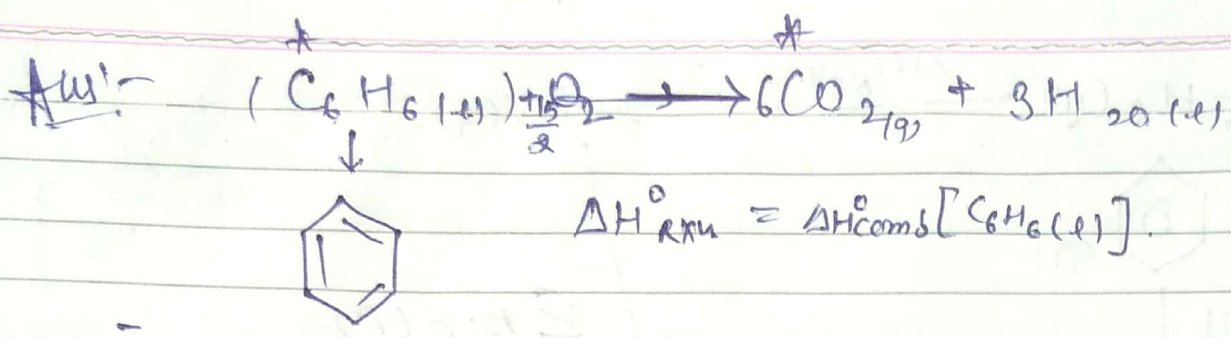 Ans:- (C₆H₆(l)) + 15/2 O₂ → 6CO₂(g) + 3H₂O(l)
ΔH°Rxn = ΔH°comb[C₆H₆(l)].